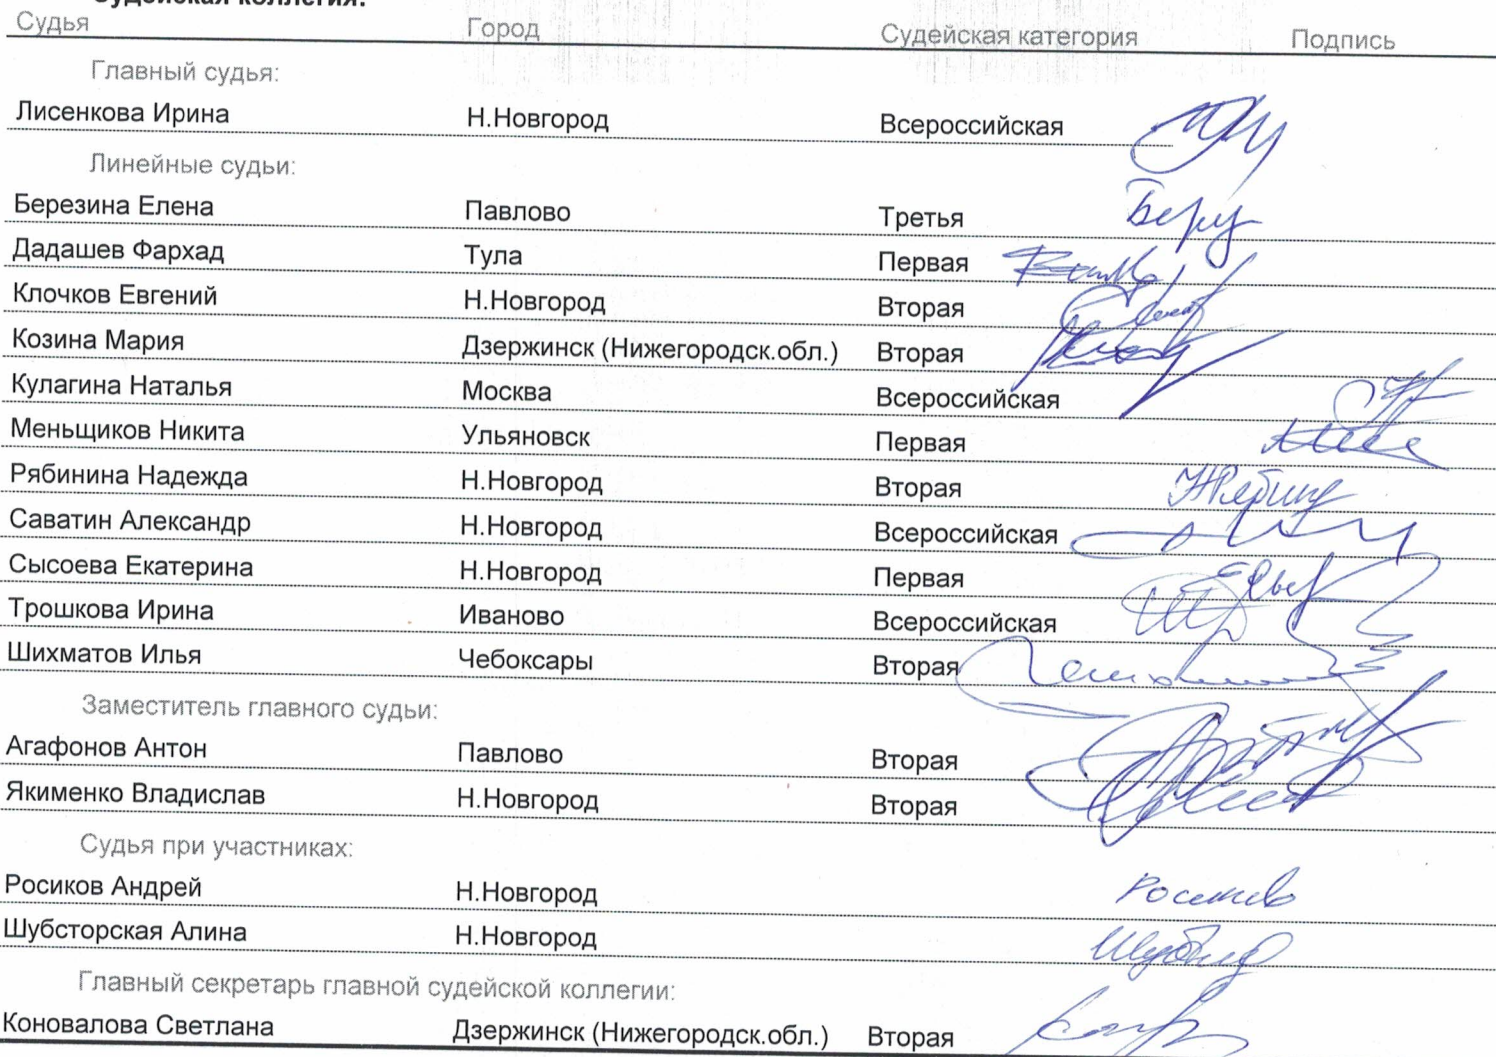 Судейская коллегия:
Судья Город Судейская категория Подпись
Главный судья:
Лисенкова Ирина Н.Новгород Всероссийская
Линейные судьи:
Березина Елена Павлово Третья
Дадашев Фархад Тула Первая
Клочков Евгений Н.Новгород Вторая
Козина Мария Дзержинск (Нижегородск.обл.) Вторая
Кулагина Наталья Москва Всероссийская
Меньщиков Никита Ульяновск Первая
Рябинина Надежда Н.Новгород Вторая
Саватин Александр Н.Новгород Всероссийская
Сысоева Екатерина Н.Новгород Первая
Трошкова Ирина Иваново Всероссийская
Шихматов Илья Чебоксары Вторая
Заместитель главного судьи:
Агафонов Антон Павлово Вторая
Якименко Владислав Н.Новгород Вторая
Судья при участниках:
Росиков Андрей Н.Новгород Росиков
Шубсторская Алина Н.Новгород
Главный секретарь главной судейской коллегии:
Коновалова Светлана Дзержинск (Нижегородск.обл.) Вторая